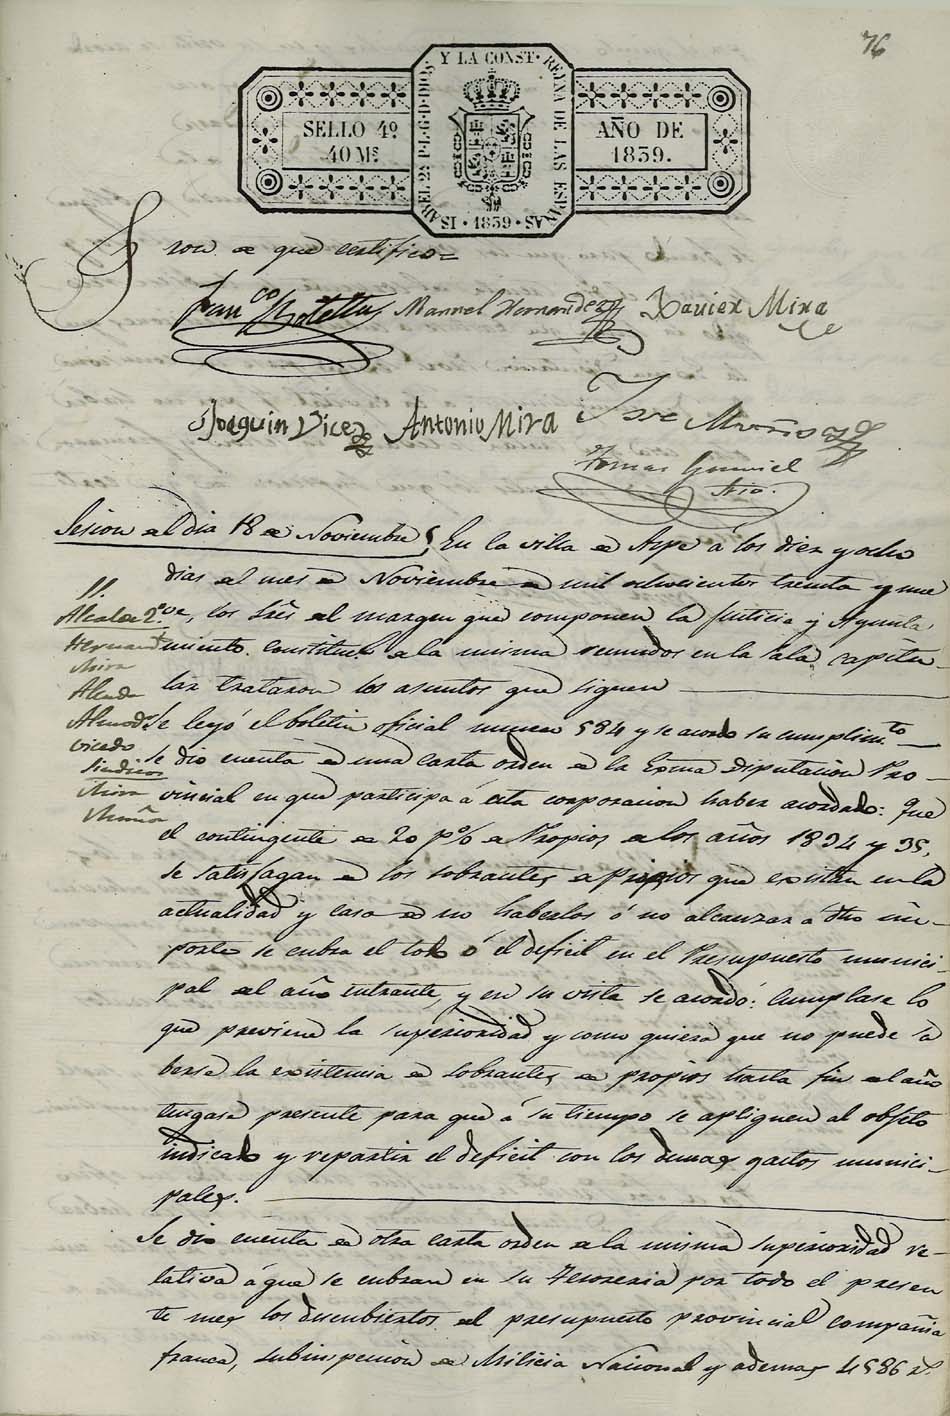 76
ISABEL 2ª P. L. G. D. DIOS Y LA CONST. REYNA DE LAS ESPAÑAS
SELLO 4º
40 Mˢ
AÑO DE
1839.
1839
ron de que certifico=
Franco Botella Manuel Hernandez Xavier Mira
Joaquin Vicedo Antonio Mira Jose Muñoz
Tomas
Srio.
Sesion del dia 18 de Noviembre En la villa de Aspe á los diez y ocho
dias del mes de Noviembre de mil ochocientos treinta y nue
ve, los Sres del margen que componen la Justicia y Ayunta
miento constitul. de la misma reunidos en la sala capitu-
lar trataron los asuntos que siguen
SS.
Alcalde 2º
Hernandz
Mira
Alcada
Almodr
Vicedo
Sindicos
Mira
Muñoz
Se leyó el boletin oficial numero 584 y se acordo su cumplimto
Se dio cuenta de una carta orden de la Exma Diputacion Pro-
vincial en que participa á esta corporacion haber acordado: Que
el contingente de 20 p% de Propios de los años 1834 y 35,
se satisfagan de los sobrantes de Propios que existan en la
actualidad y caso de no haberlos ó no alcanzar á dho im-
porte se cubra el todo ó el deficit en el Presupuesto munici-
pal del año entrante, y en su vista se acordó: Cumplase lo
que previene la superioridad y como quiera que no puede sa
berse la existencia de sobrantes de propios hasta fin del año
tengase presente para que á su tiempo se apliquen al objeto
indicado y repartir el deficit con los demas gastos munici-
pales.
Se dio cuenta de otra carta orden de la misma superioridad re-
lativa á que se cubran en su Tesoreria por todo el presen
te mes los descubiertos del presupuesto provincial compañia
franca, subinspeccion de Milicia Nacional y ademas 4586 rs